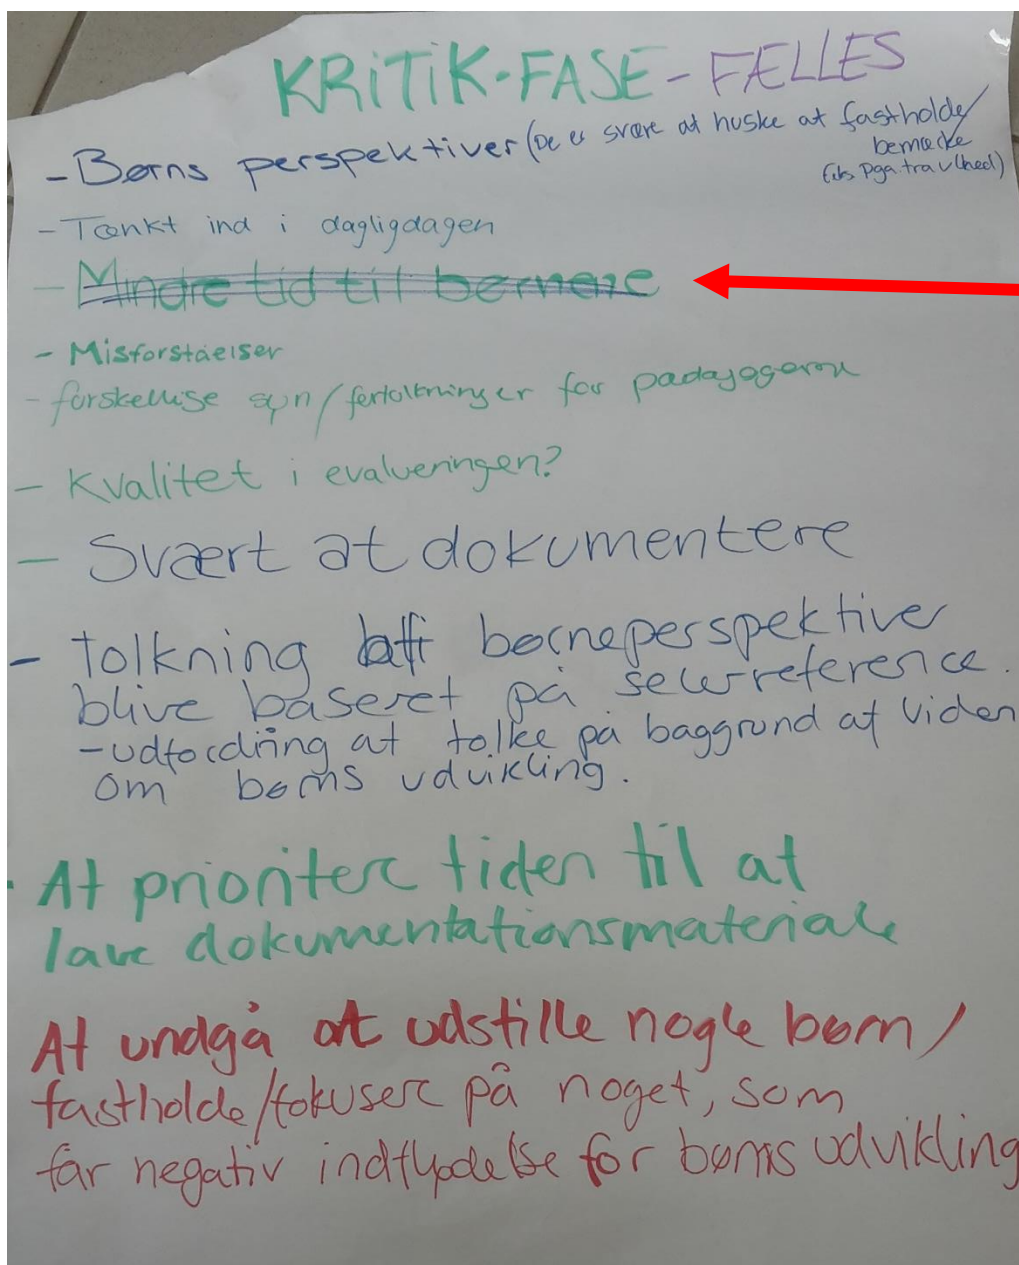 KRiTiK-FASE - FÆLLES
- Børns perspektiver (De er svære at huske at fastholde/
bemærke
f.eks. pga. travlhed)
- Tænkt ind i dagligdagen
- Mindre tid til børnene
- Misforståelser
- forskellige syn/fortolkninger for pædagogerne
- Kvalitet i evalueringen?
- Svært at dokumentere
- Tolkning af børneperspektiver
blive baseret på selvreference.
- udfordring at tolke på baggrund af viden
om børns udvikling.
· At prioritere tiden til at
lave dokumentationsmateriale
At undgå at udstille nogle børn/
fastholde/fokusere på noget, som
får negativ indflydelse for børns udvikling